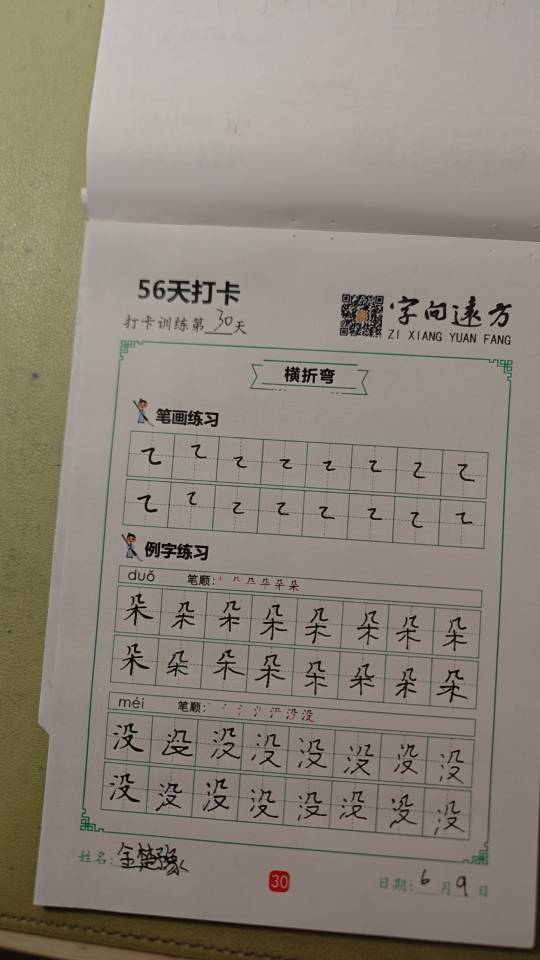 56天打卡
打卡训练第30天
字向远方
ZI XIANG YUAN FANG
横折弯
笔画练习
例字练习
duǒ 笔顺:
朵 朵 朵 朵 朵 朵 朵 朵
朵 朵 朵 朵 朵 朵 朵 朵
méi 笔顺:
没 没 没 没 没 没 没 没
没 没 没 没 没 没 没 没
姓名:
30
日期: 6 月 9 日